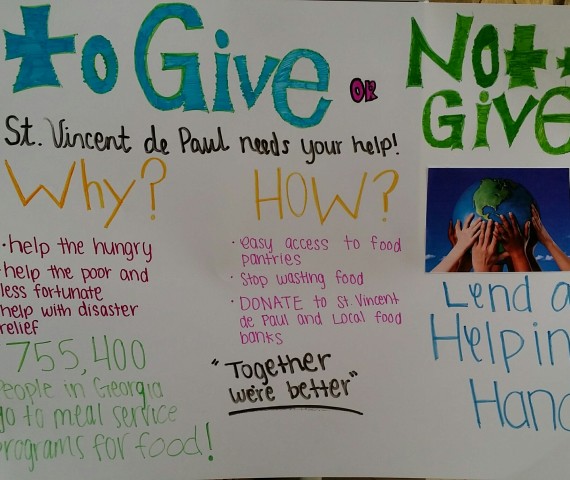 to Give OR
Not
Give
St. Vincent de Paul needs your help!
Why?
• help the hungry
help the poor and
less fortunate
help with disaster
relief
755,400
People in Georgia
go to meal service
programs for food!
HOW?
• easy access to food
pantries
• Stop wasting food
• DONATE to St Vincent
de Paul and Local food
banks
"Together
we're better"
Lend a
Helpin
Hand